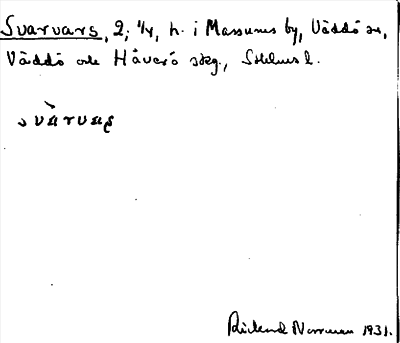 Svarvars, 2; 1/4, h. i Massums by, Väddö sn,
Väddö och Häverö skg., Sthlms l.
svàrvaṣ
Rickard Norrman 1931.